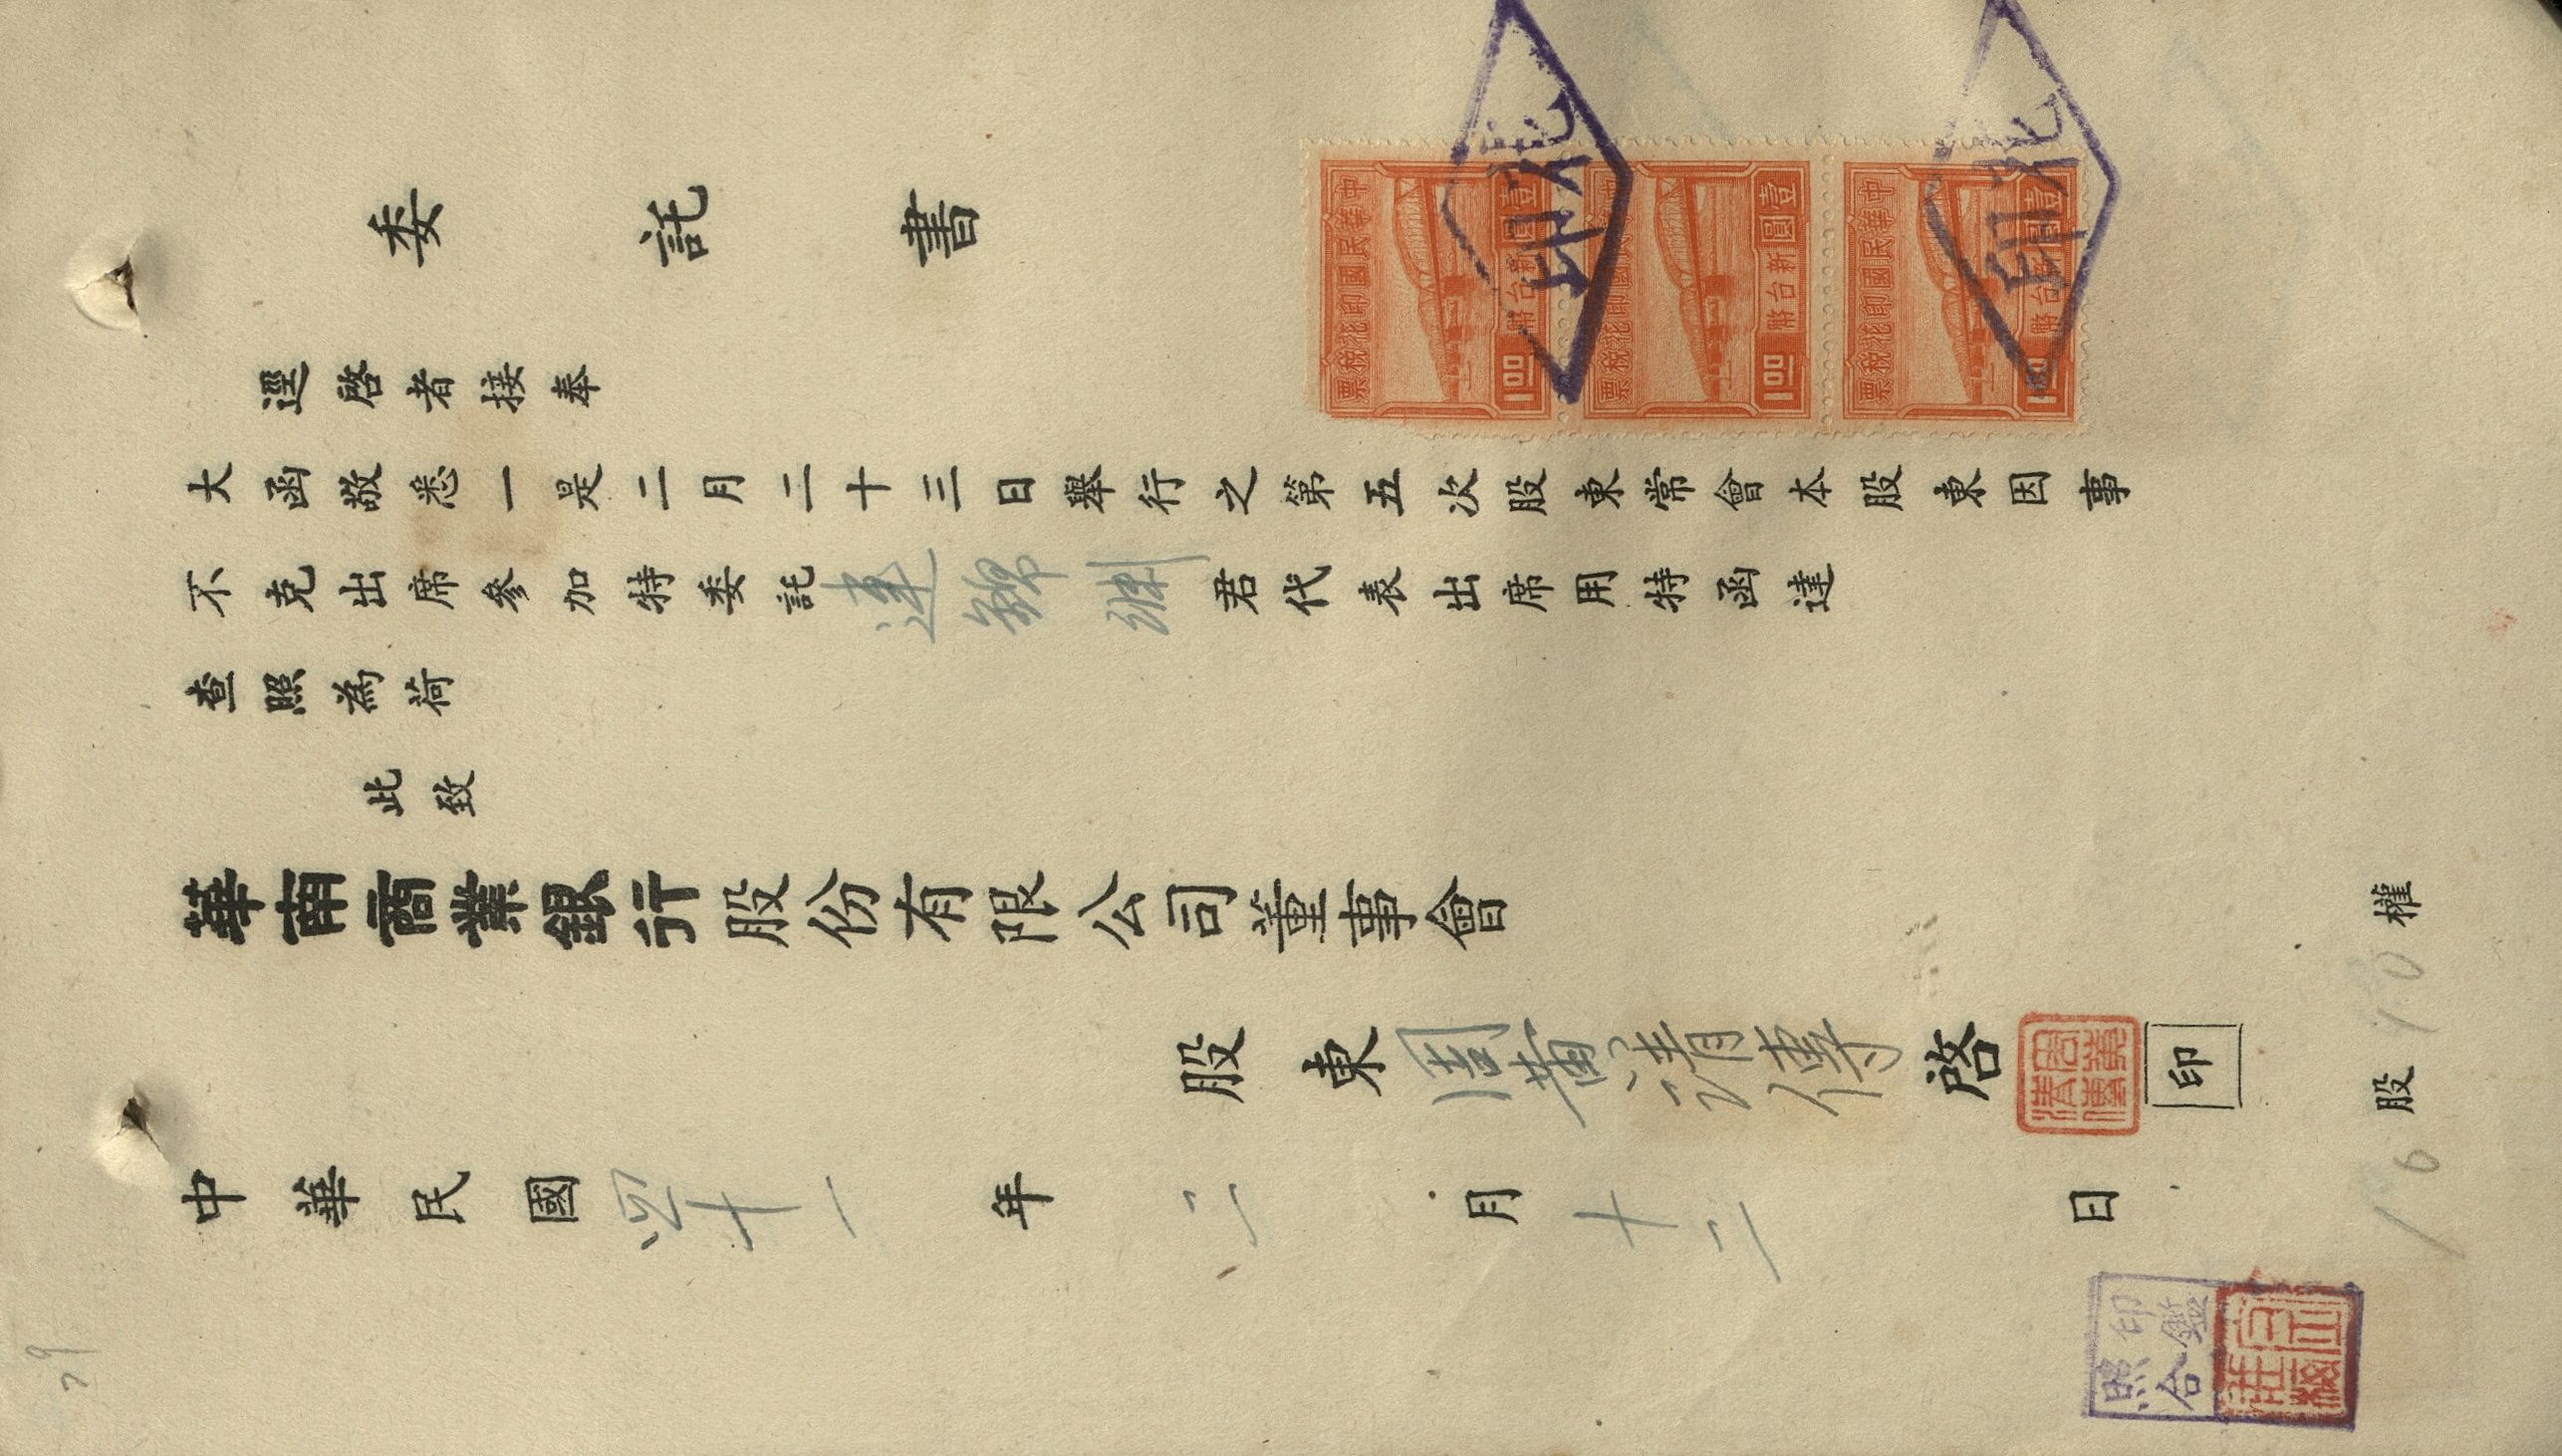 委託書
逕啓者接奉
大函敬悉一是二月二十三日舉行之第五次股東常會本股東因事
不克出席參加特委託連錦淵君代表出席用特函達
查照為荷
此致
華南商業銀行股份有限公司董事會
股東周黃清傳啓 印
中華民國四十一年二月十二日
股10權
中華民國印花稅票
壹圓新台幣
1.00
中華民國印花稅票
壹圓新台幣
1.00
中華民國印花稅票
壹圓新台幣
1.00
印鑑
照合
29